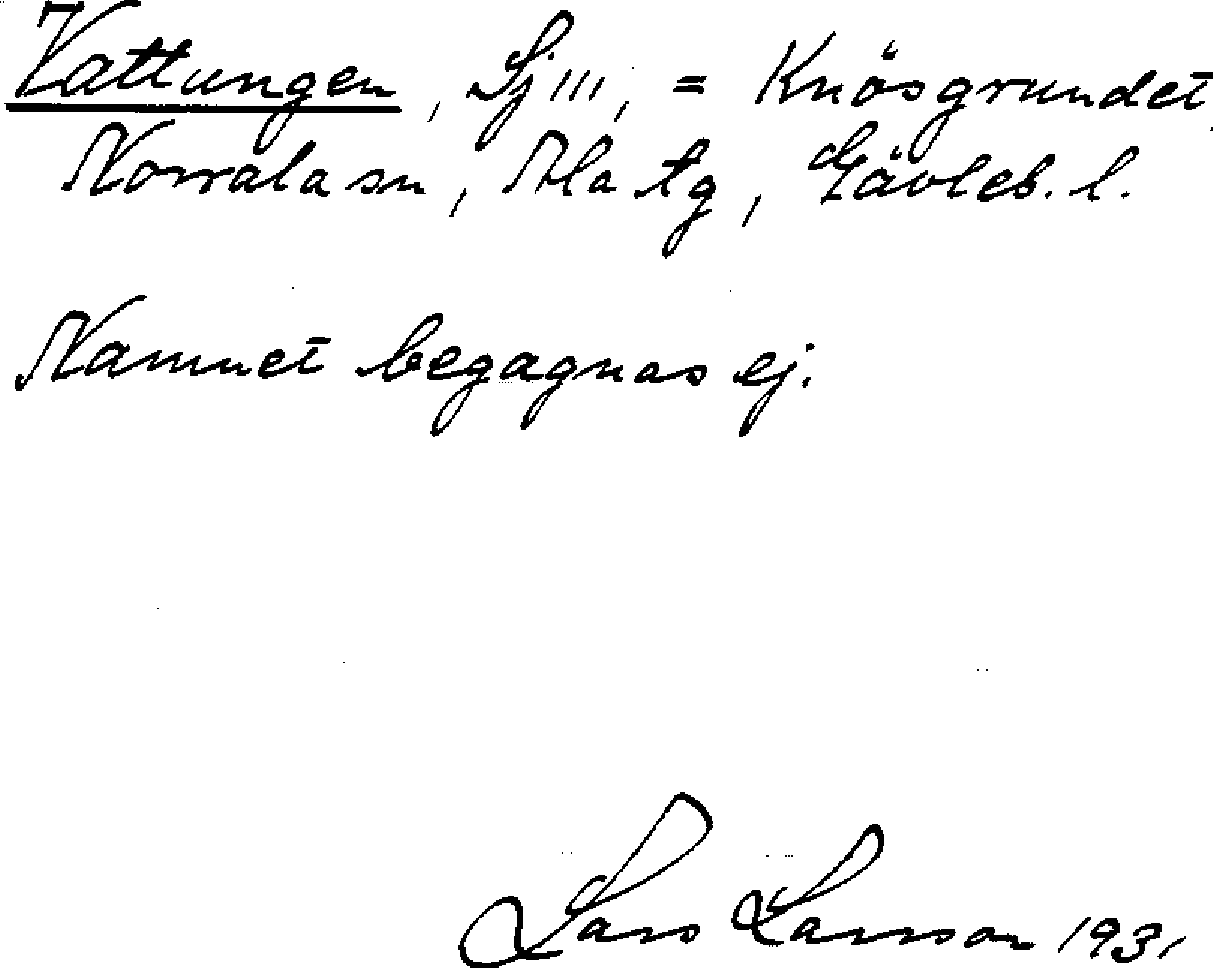 Vattungen, Sj III, = Knösgrundet
Norrala sn, Ala tg, Gävleb. l.
Namnet begagnas ej.
Lars Larsson 1931